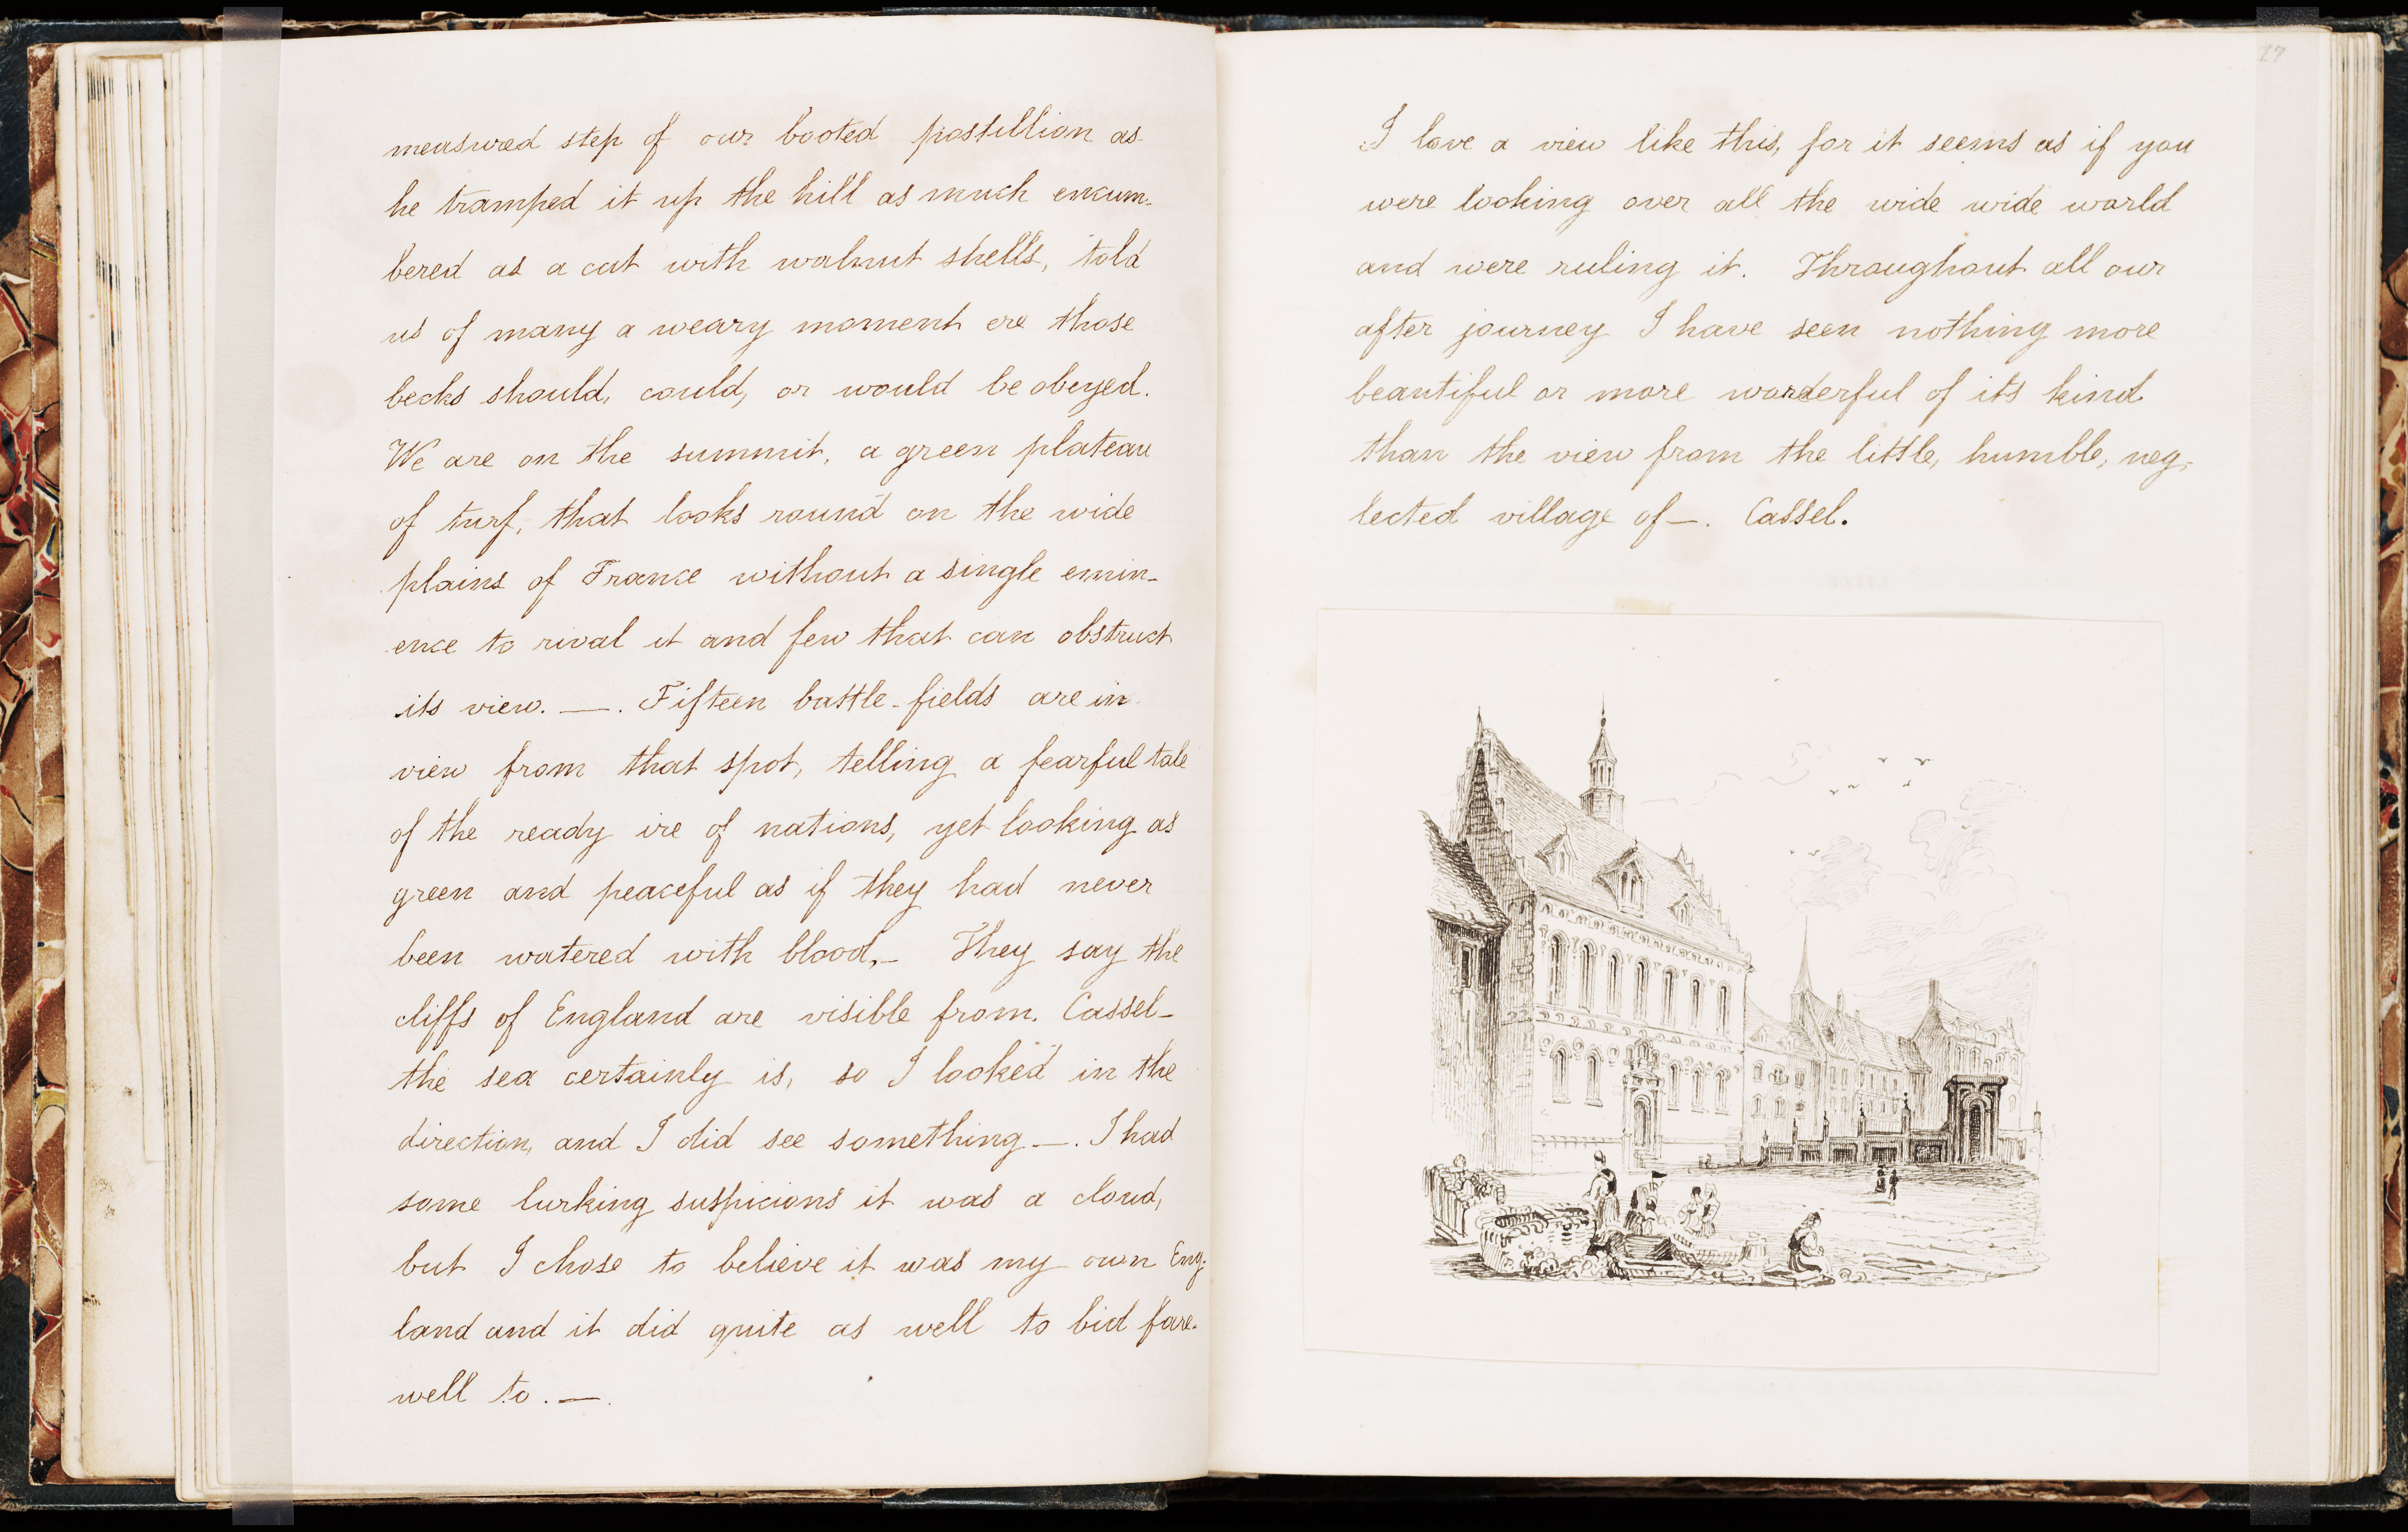 measured step of our booted postillion as
he tramped it up the hill as much encum-
bered as a cat with walnut shells, told
us of many a weary moment ere those
becks should, could, or would be obeyed.
We are on the summit, a green plateau
of turf, that looks round on the wide
plains of France without a single emin-
ence to rival it and few that can obstruct
its view. —. Fifteen battle-fields are in
view from that spot, telling a fearful tale
of the ready ire of nations, yet looking as
green and peaceful as if they had never
been watered with blood,- They say the
cliffs of England are visible from. Cassel-
the sea certainly is, so I looked in the
direction, and I did see something —. I had
some lurking suspicions it was a cloud,
but I chose to believe it was my own Eng-
land and it did quite as well to bid fare-
well to. —.
17
I love a view like this, for it seems as if you
were looking over all the wide wide world
and were ruling it. Throughout all our
after journey I have seen nothing more
beautiful or more wonderful of its kind
than the view from the little, humble, neg-
lected village of —. Cassel.